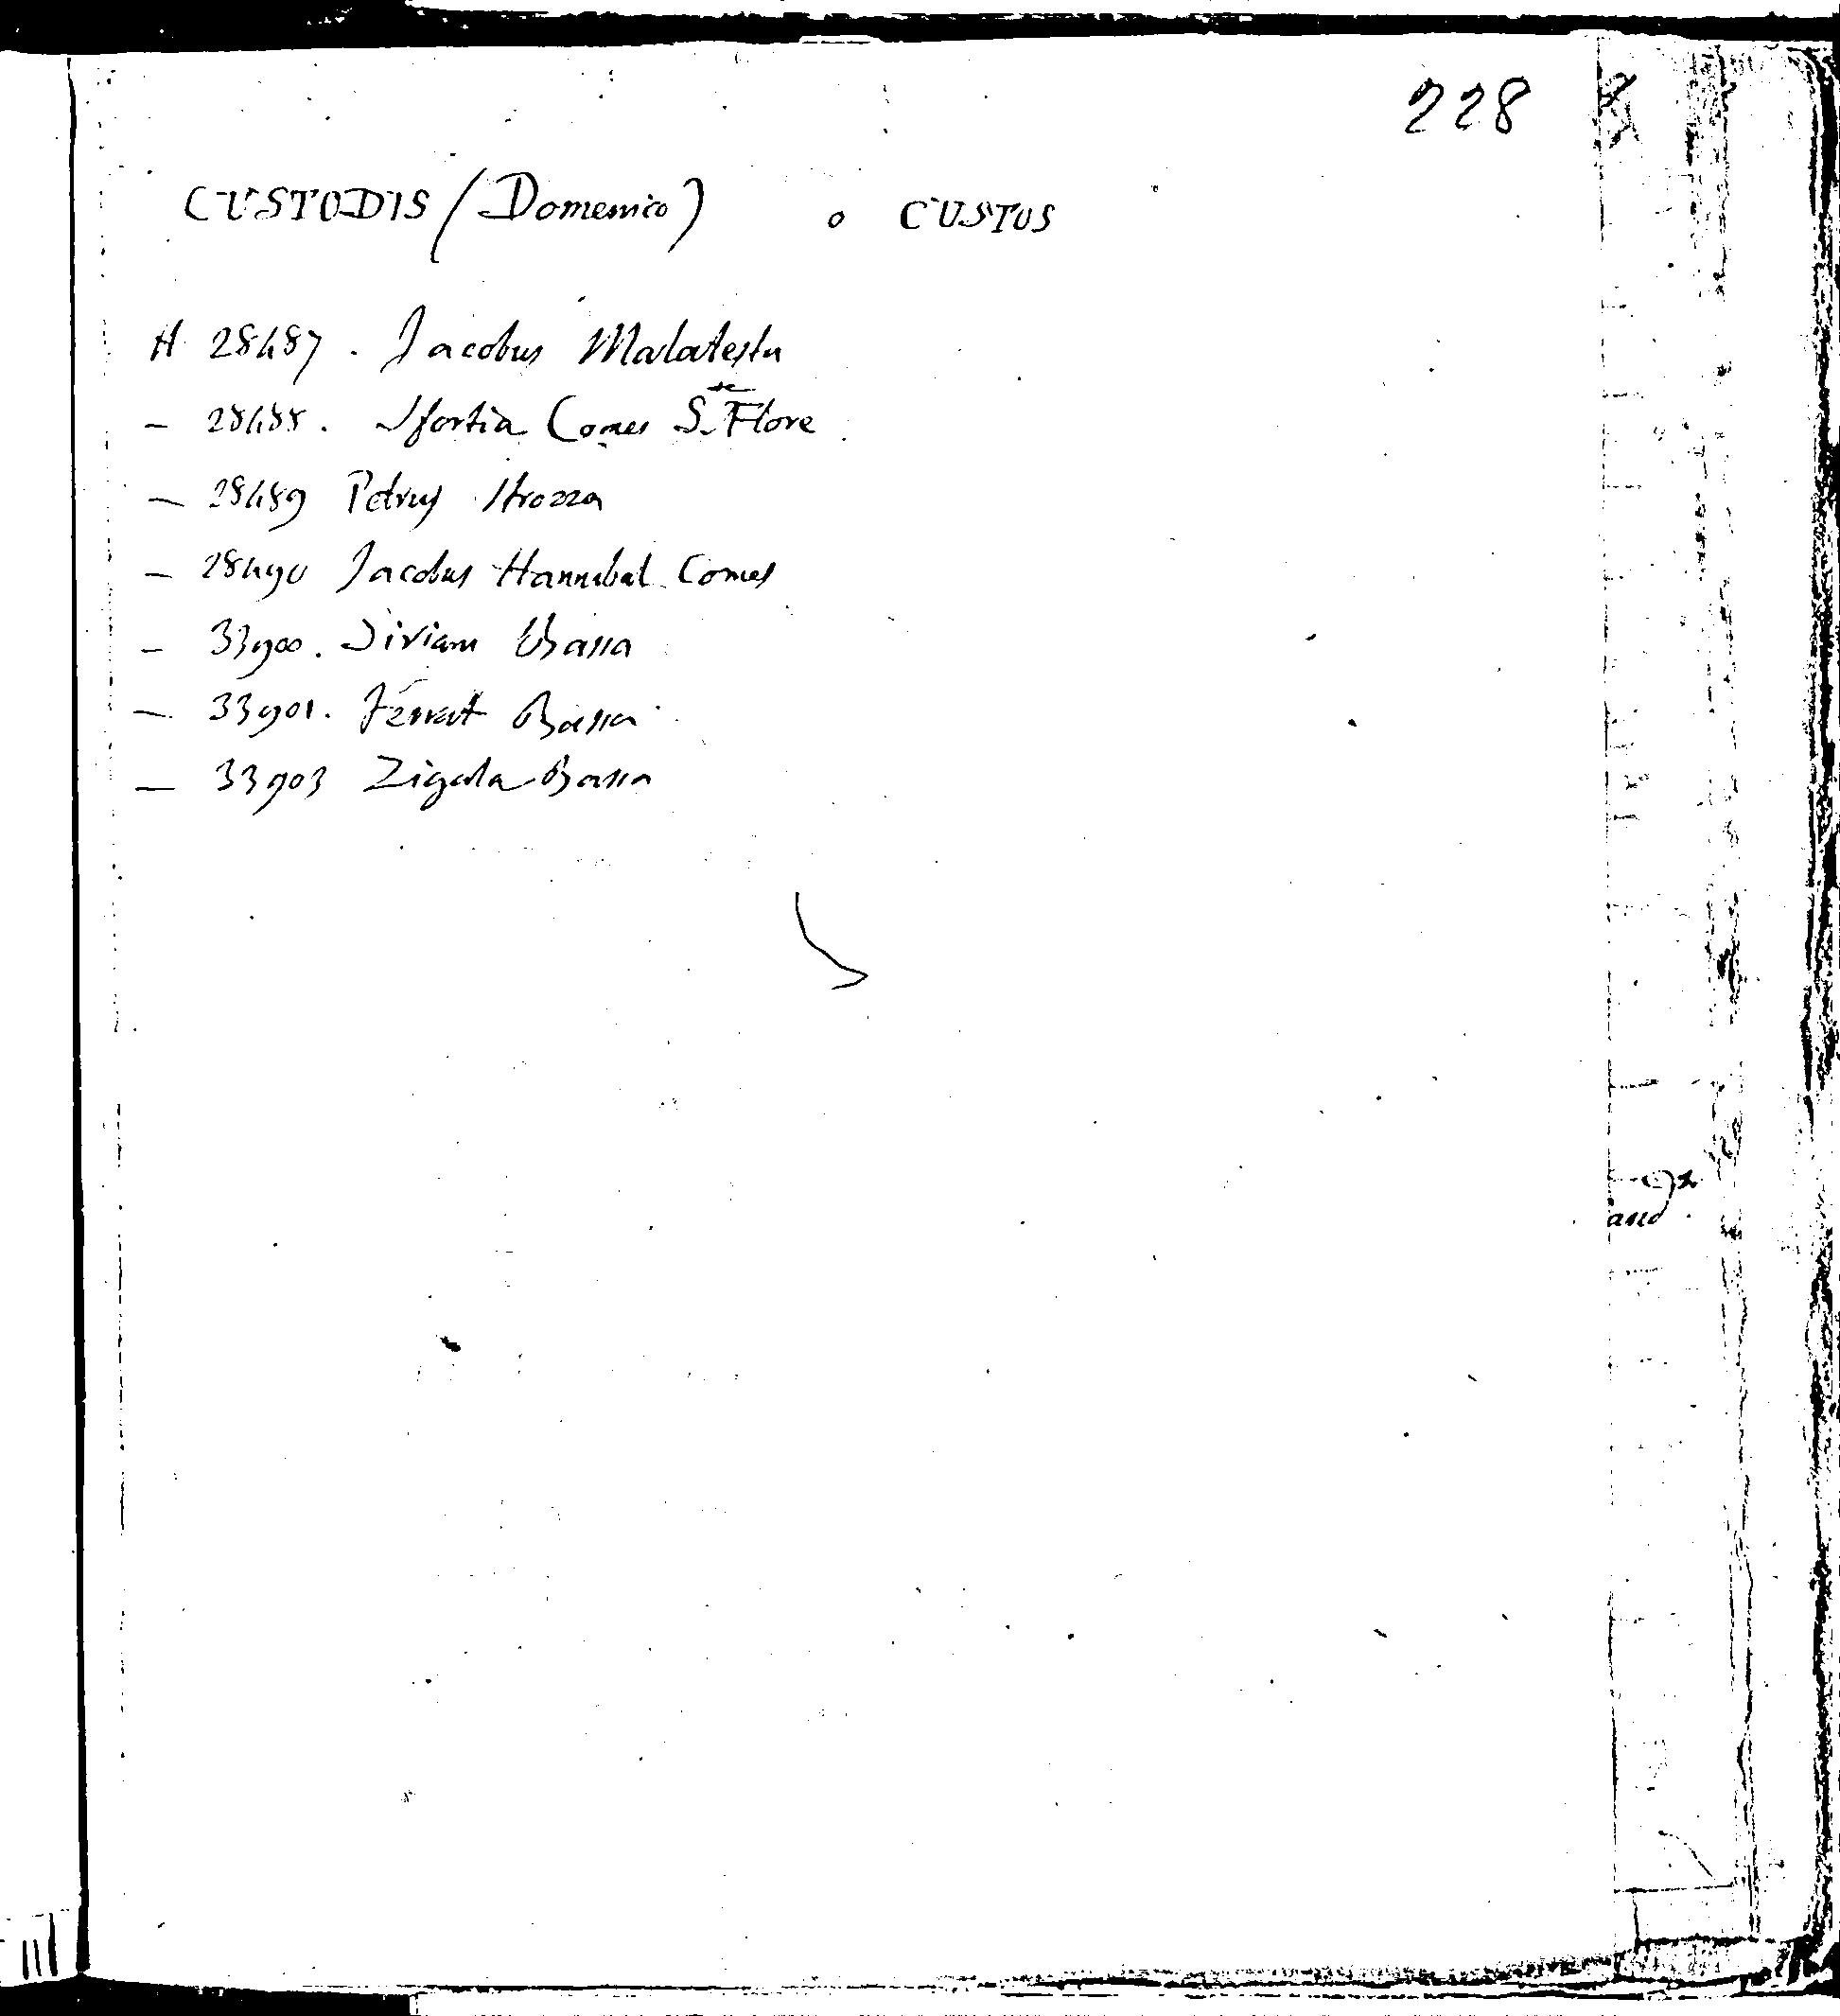 228
CUSTODIS (Domenico) o CUSTOS
H 28487. Jacobus Malatesta
— 28488. Sfortia Comes S. Flore
— 28489 Petrus Strozza
— 28490 Jacobus Hannibal Comes
— 33900. Siriam Bassa
— 33901. Ferrat Bassa
— 33903 Zigala Bassa